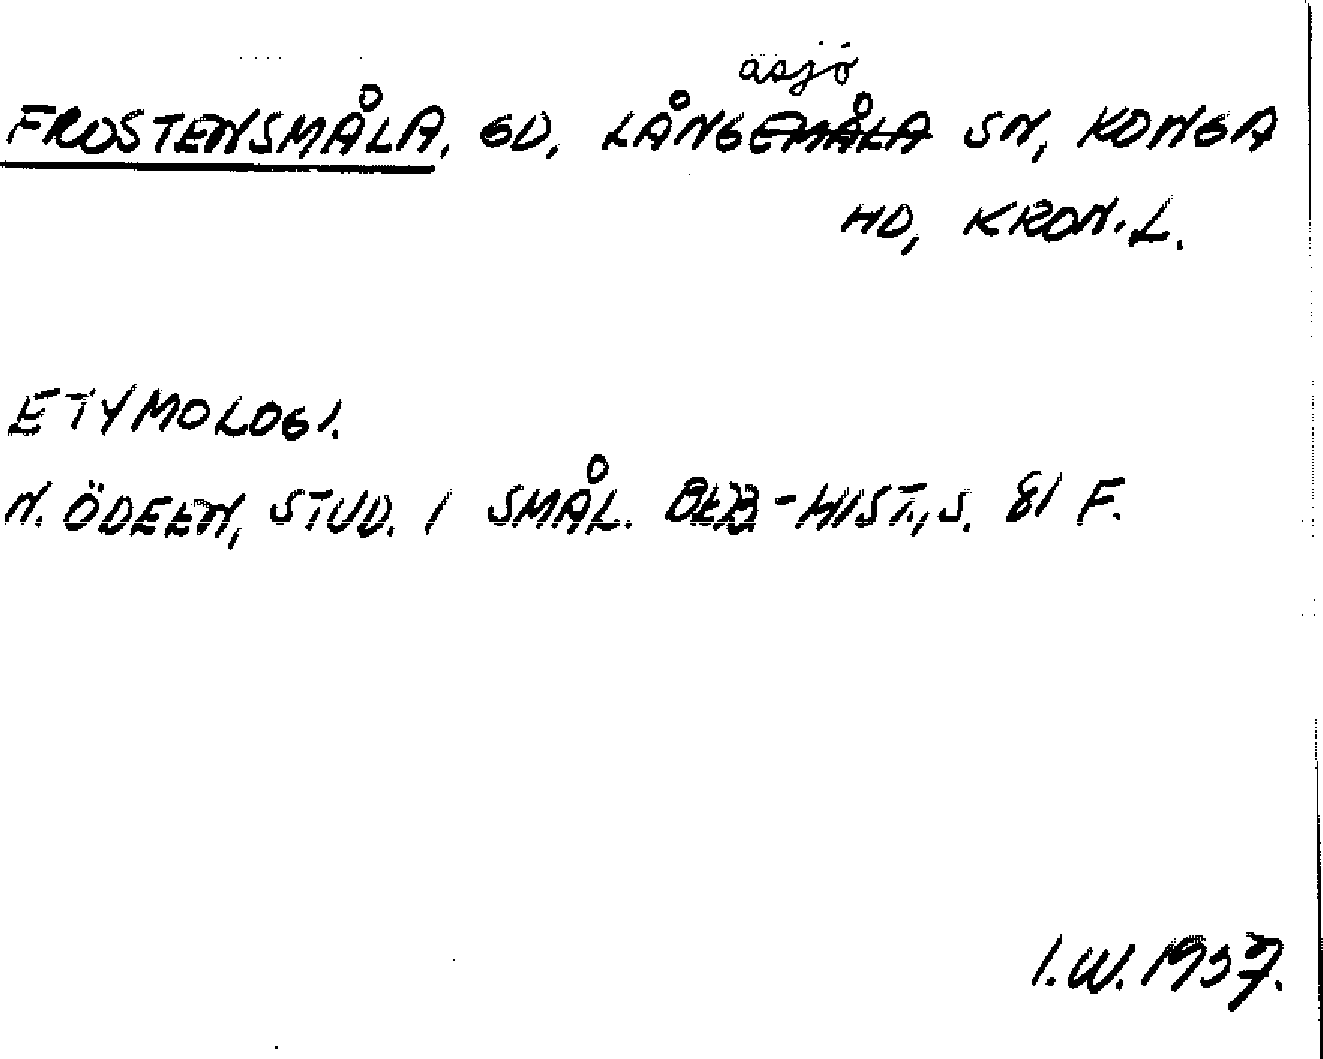 FROSTENSMÅLA, GD, LÅNGASJÖ SN, KONGA
HD, KRON.L.
ETYMOLOGI.
N. ÖDEEN, STUD. I SMÅL. BEB-HIST., S. 81 F.
I.W. 1937.